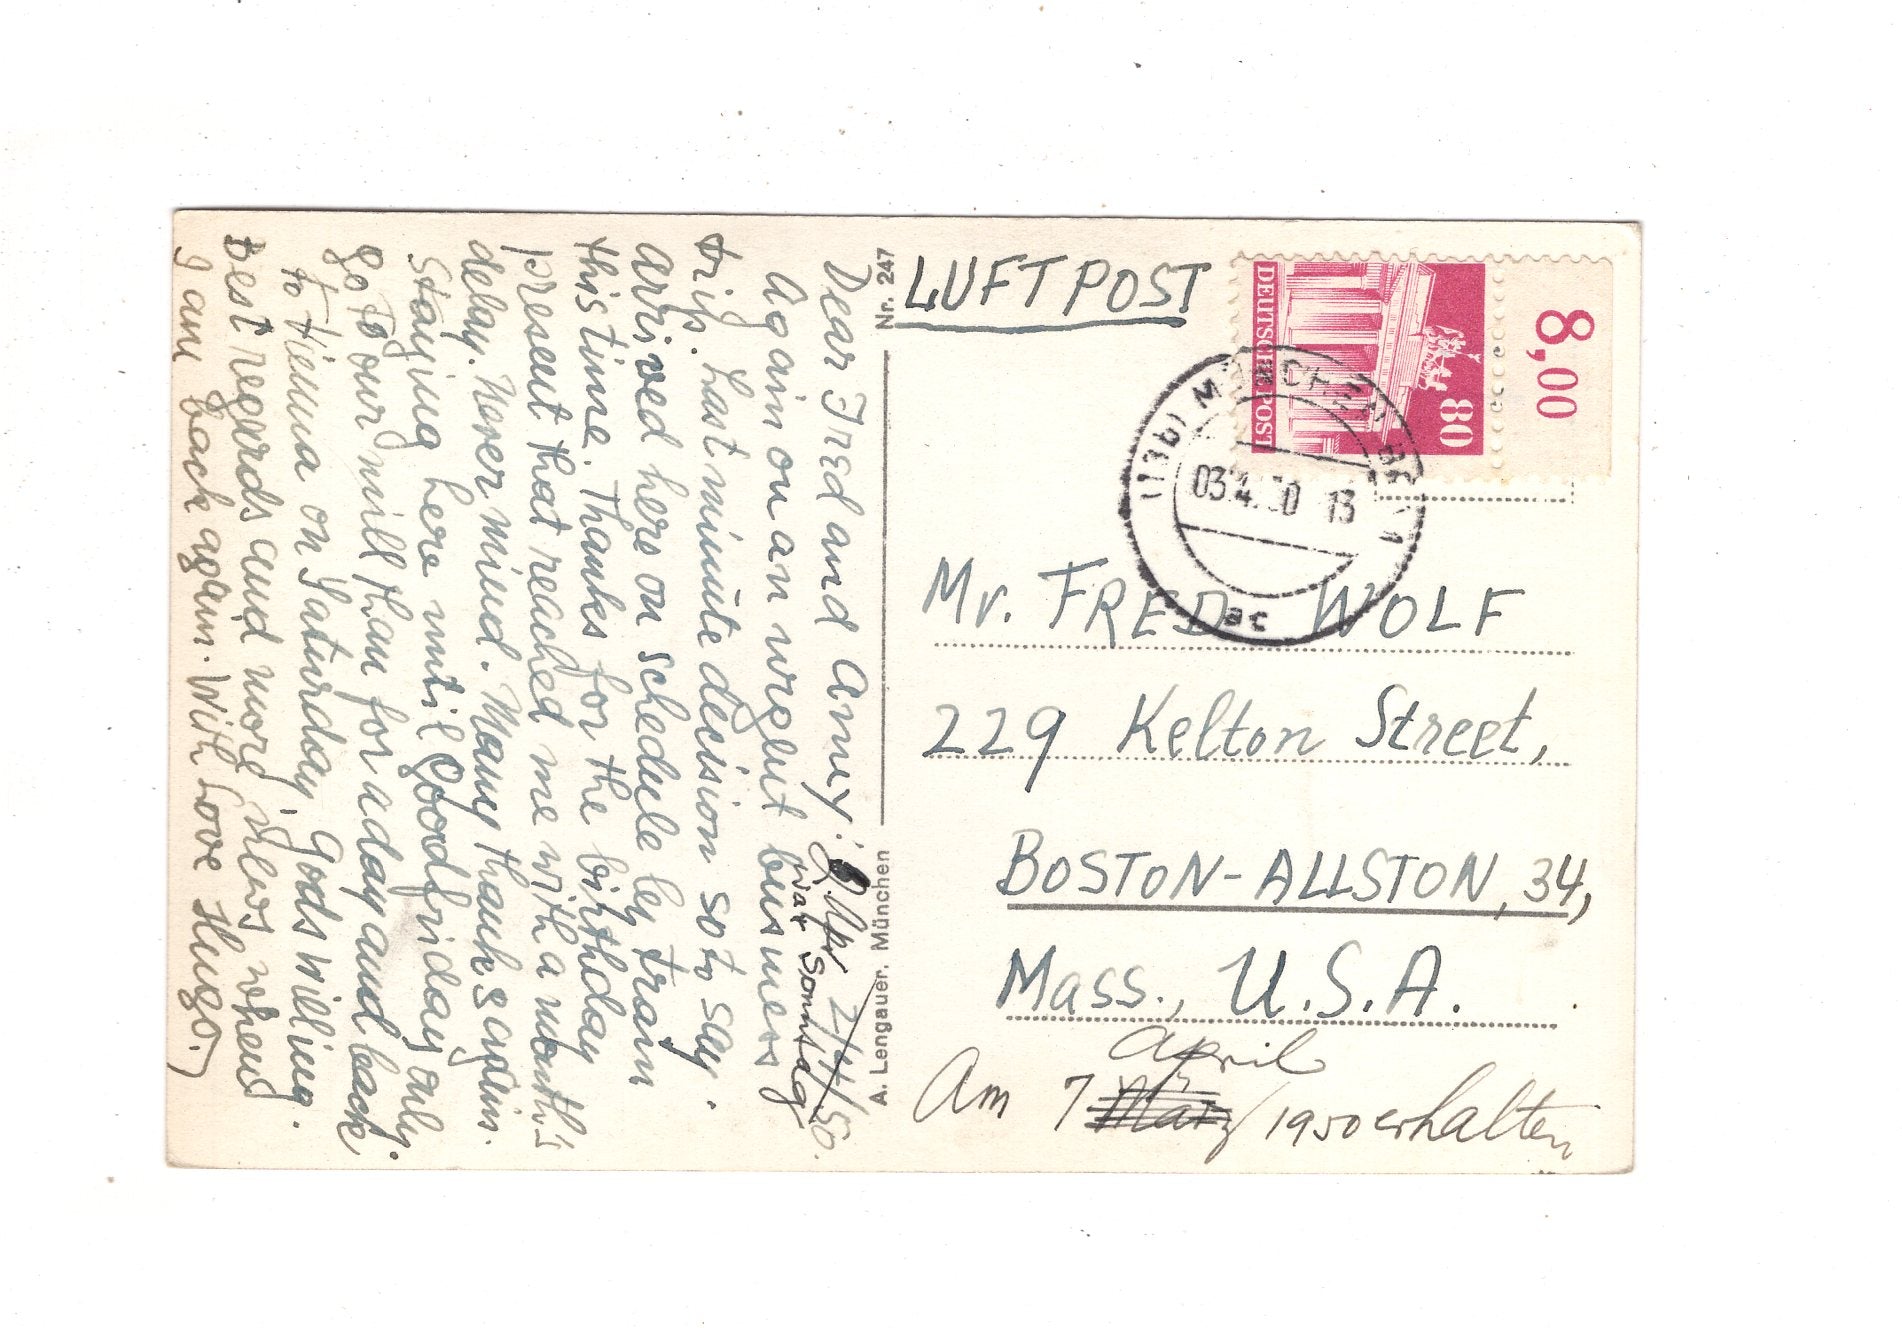 Dear Fred and Anney!
2/4/50.
2. Apr
war Sonntag
Again on an urgent business
trip. Last minute decision so to say.
Arrived here on schedule by train
this time. Thanks for the birthday
present that reached me with a month's
delay. Never mind. Many thanks again.
Staying here until Good friday only.
Go to our mill than for a day and back
to Vienna on Saturday, Gods willing.
Best regards and more news when
I am back again. With Love Hugo.
Nr. 247
A. Lengauer, München
LUFTPOST
DEUTSCHE POST
80
8,00
(13b) MÜNCHEN BPA 1
03.4.50 13
ac
Mr. FRED WOLF
229 Kelton Street,
BOSTON-ALLSTON, 34,
MASS., U.S.A.
April
Am 7 März 1950 erhalten